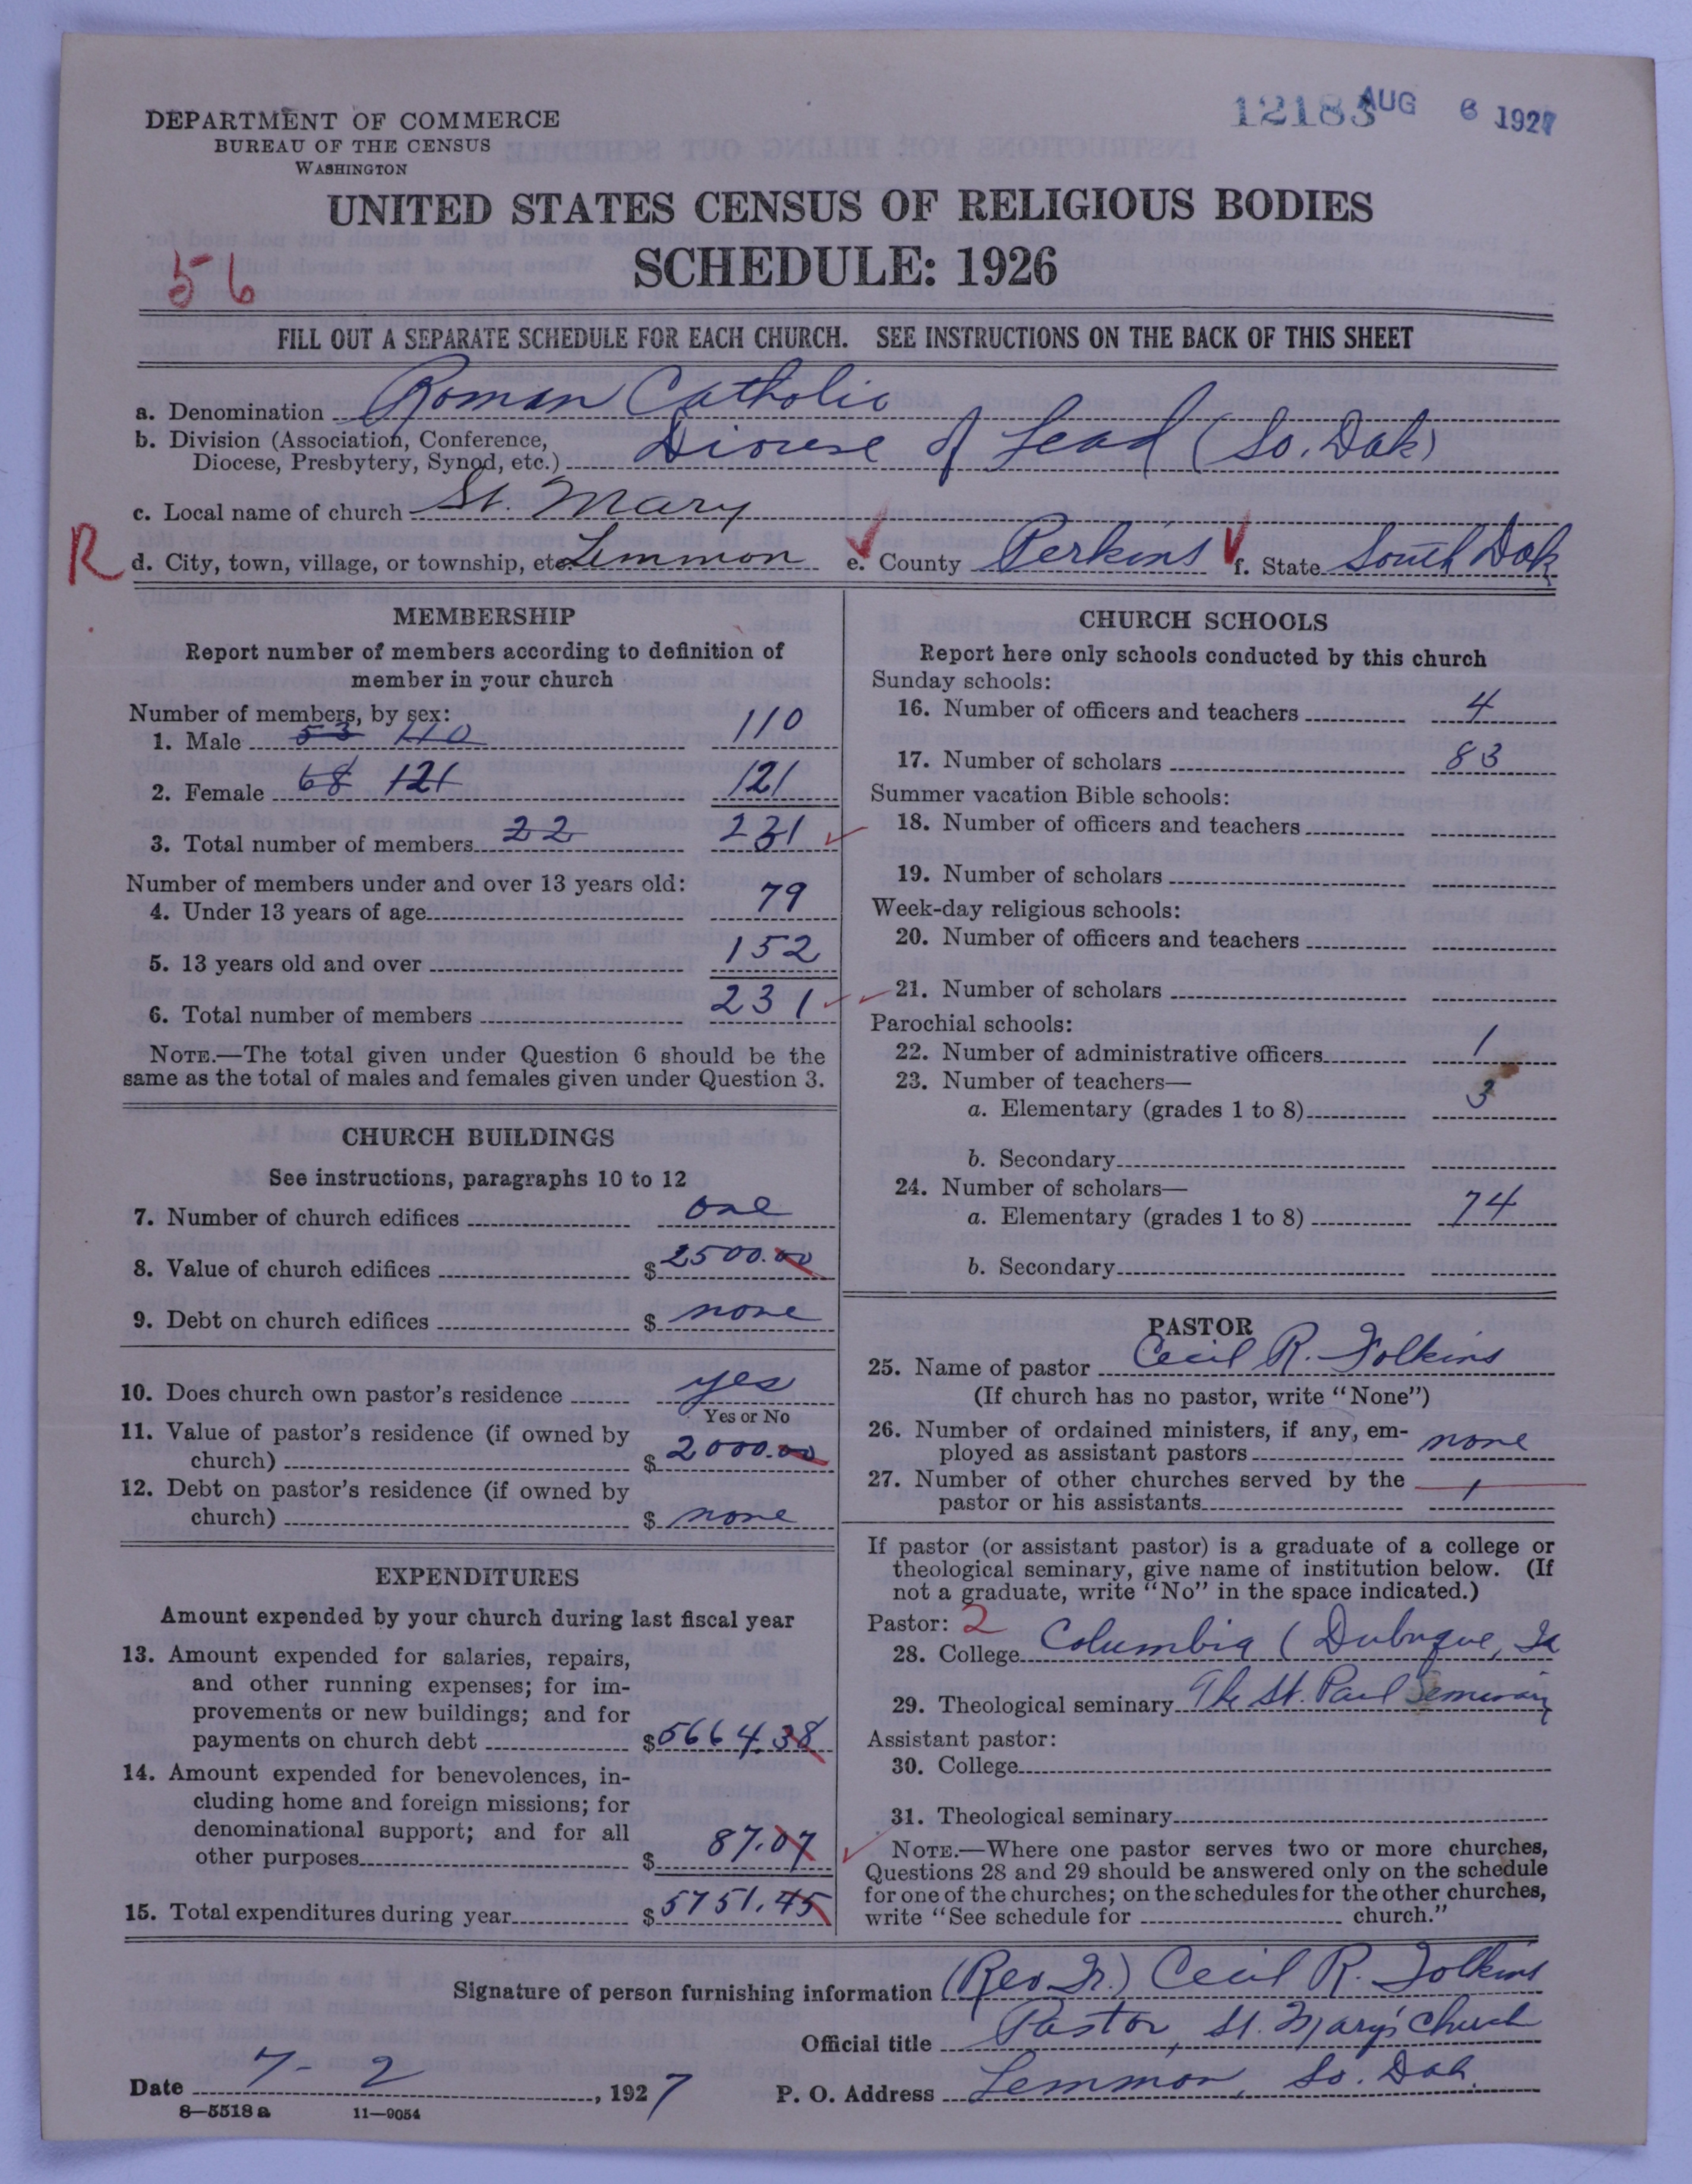 12183 AUG 6 1927
DEPARTMENT OF COMMERCE
BUREAU OF THE CENSUS
WASHINGTON
UNITED STATES CENSUS OF RELIGIOUS BODIES
SCHEDULE: 1926
56
FILL OUT A SEPARATE SCHEDULE FOR EACH CHURCH. SEE INSTRUCTIONS ON THE BACK OF THIS SHEET
a. Denomination Roman Catholic
b. Division (Association, Conference,
Diocese, Presbytery, Synod, etc.) Diocese of Lead (So. Dak)
c. Local name of church St. Mary
R d. City, town, village, or township, etc. Lemmon e. County Perkins f. State South Dak
MEMBERSHIP
Report number of members according to definition of
member in your church
Number of members, by sex:
1. Male 53 110 110
2. Female 68 121 121
3. Total number of members 22 231
Number of members under and over 13 years old:
4. Under 13 years of age 79
5. 13 years old and over 152
6. Total number of members 231
NOTE.—The total given under Question 6 should be the
same as the total of males and females given under Question 3.
CHURCH BUILDINGS
See instructions, paragraphs 10 to 12
7. Number of church edifices one
8. Value of church edifices $ 2500.00
9. Debt on church edifices $ none
10. Does church own pastor's residence yes
Yes or No
11. Value of pastor's residence (if owned by
church) $ 2000.00
12. Debt on pastor's residence (if owned by
church) $ none
EXPENDITURES
Amount expended by your church during last fiscal year
13. Amount expended for salaries, repairs,
and other running expenses; for im-
provements or new buildings; and for
payments on church debt $ 5664.38
14. Amount expended for benevolences, in-
cluding home and foreign missions; for
denominational support; and for all
other purposes $ 87.07
15. Total expenditures during year $ 5751.45
CHURCH SCHOOLS
Report here only schools conducted by this church
Sunday schools:
16. Number of officers and teachers 4
17. Number of scholars 83
Summer vacation Bible schools:
18. Number of officers and teachers
19. Number of scholars
Week-day religious schools:
20. Number of officers and teachers
21. Number of scholars
Parochial schools:
22. Number of administrative officers 1
23. Number of teachers—
a. Elementary (grades 1 to 8) 3
b. Secondary
24. Number of scholars—
a. Elementary (grades 1 to 8) 74
b. Secondary
PASTOR
25. Name of pastor Cecil R. Folkins
(If church has no pastor, write "None")
26. Number of ordained ministers, if any, em-
ployed as assistant pastors none
27. Number of other churches served by the
pastor or his assistants 1
If pastor (or assistant pastor) is a graduate of a college or
theological seminary, give name of institution below. (If
not a graduate, write "No" in the space indicated.)
Pastor: 2
28. College Columbia (Dubuque, Ia
29. Theological seminary The St. Paul Seminary
Assistant pastor:
30. College
31. Theological seminary
NOTE.—Where one pastor serves two or more churches,
Questions 28 and 29 should be answered only on the schedule
for one of the churches; on the schedules for the other churches,
write "See schedule for church."
Signature of person furnishing information (Rev Fr.) Cecil R. Folkins
Official title Pastor, St. Mary's Church
Date 7-2, 1927 P. O. Address Lemmon, So. Dak.
8—5518 a 11—9054